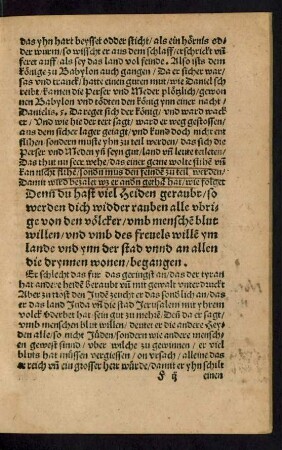 das yhn hart beysset odder sticht/ als ein hörnis od-
der wurm/ so wisscht er aus dem schlaff/ erschrickt vñ
feret auff/ als sey das land vol feinde. Also ists dem
könige zu Babylon auch gangen/ Da er sicher war/
sas vnd tranck/ hatte einen guten mut/ wie Daniel sch
reibt/ kamen die Perser vnd Meder plötzlich/ gewon
nen Babylon vnd tödten den könig ynn einer nacht/
Danielis.5. Da reget sich der könig/ vnd ward wack
er/ Vnd wie hie der text sagt/ ward er weg gestossen/
aus dem sicher lager geiagt/ vnd kund doch nicht ent
flihen sondern muste yhn zu teil werden/ das sich die
Perser vnd Meder yñ seyn gut land vñ leute teileten/
Das thut nu seer wehe/ das einer gerne wolte flihẽ vñ
kan nicht flihẽ/ sondñ mus den feindẽ zu teil werden/
Damit wird bezalet wz er andñ gethã hat/ wie folget
Denn du hast viel Heiden geraubt/ so
werden dich widder rauben alle vbri
ge von den völcker/ vmb menschẽ blut
willen/ vnd vmb des freuels willẽ ym
lande vnd ynn der stad vnnd an allen
die drynnen wonen/ begangen.
Er schlecht das fur das geringst an/ das der tyran
hat ander e heidẽ beraubt vñ mit gewalt vnterdruckt
Aber zu trost den Judẽ zeucht er das sondlich an/ das
er das land Juda vñ die stad Jerusalem mit yhrem
volck verderbet hat/ sein gut zu mehrẽ. Deñ da er sagt/
vmb menschen blut willen/ deutet er die andere Hey-
den alle/ so nicht Jüden/ sondern wie andere menschen
gewest sind/ vber wilche zu gewinnen/ er viel
bluts hat müssen vergiessen/ on vrsach/ alleine das
er reich vñ ein grosser herr würde/ damit er yhn schilt
F ij einen